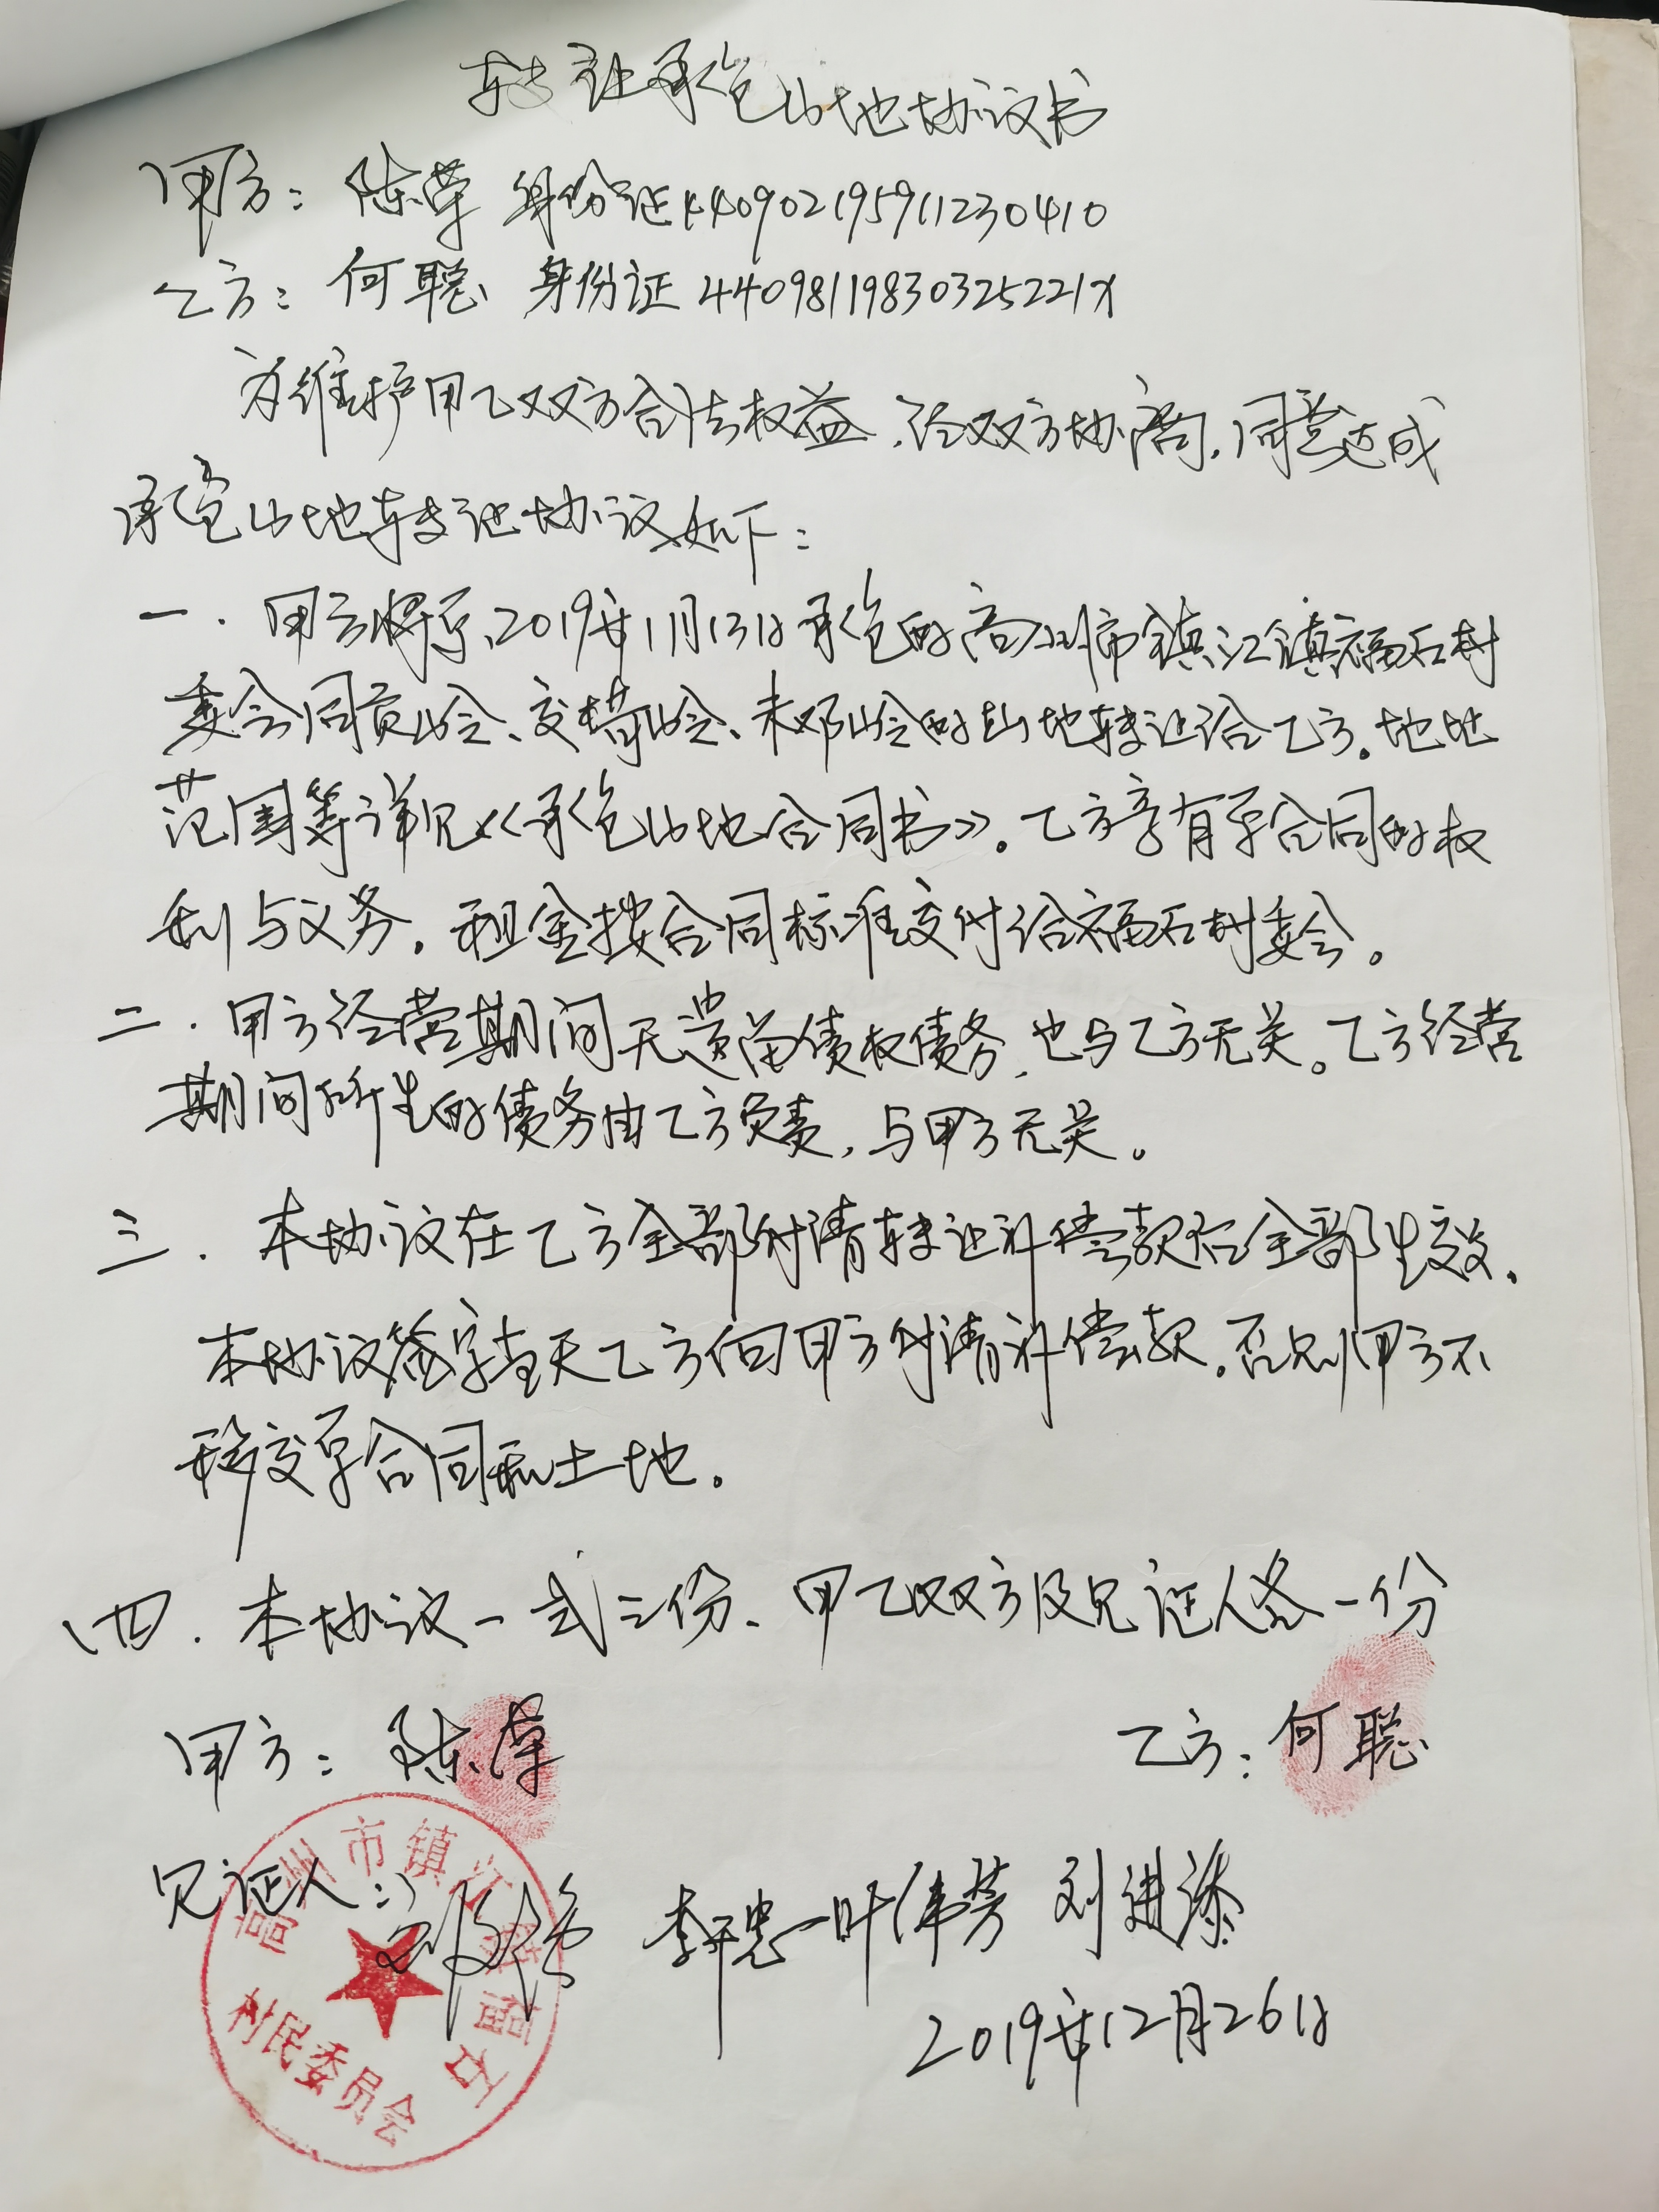 转让承包山地协议书
甲方：陈荣 身份证440902195911230410
乙方：何聪 身份证44098119830325221X
为维护甲乙双方合法权益，经双方协商，同意达成
承包山地转让协议如下：
一．甲方将于2019年1月13日承包的高州市镇江镇福石村
委会同贡岭、交椅岭、未邓岭的山地转让给乙方。地址
范围等详见《承包山地合同书》。乙方享有原合同的权
利与义务。租金按合同标准交付给福石村委会。
二．甲方经营期间无遗留债权债务，也与乙方无关。乙方经营
期间所生的债务由乙方负责，与甲方无关。
三．本协议在乙方全部付清转让补偿款后全部生效。
本协议签字当天乙方向甲方付清补偿款。否则甲方不
移交原合同和土地。
四．本协议一式三份、甲乙双方及见证人各一份
甲方：陈荣
乙方：何聪
见证人： 李开忠 叶伟芳 刘进添
2019年12月26日
高州市镇江镇福石
村民委员会